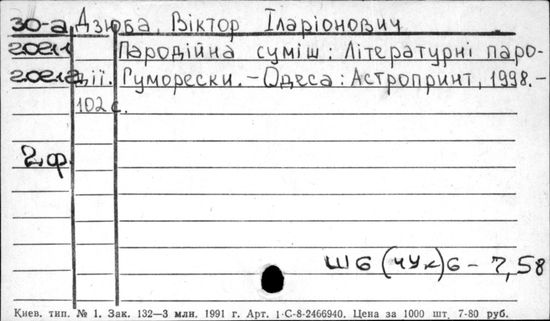 30-а Дзюба, Віктор Іларіонович
Пародійна суміш: Літературні паро-
дії. Гуморески. – Одеса: Астропринт, 1998. –
102 с.
2 ф.
Ш6 (4Ук) 6 – 7,58
Киев. тип. № 1. Зак. 132—3 млн. 1991 г. Арт. 1-С-8-2466940. Цена за 1000 шт. 7-80 руб.